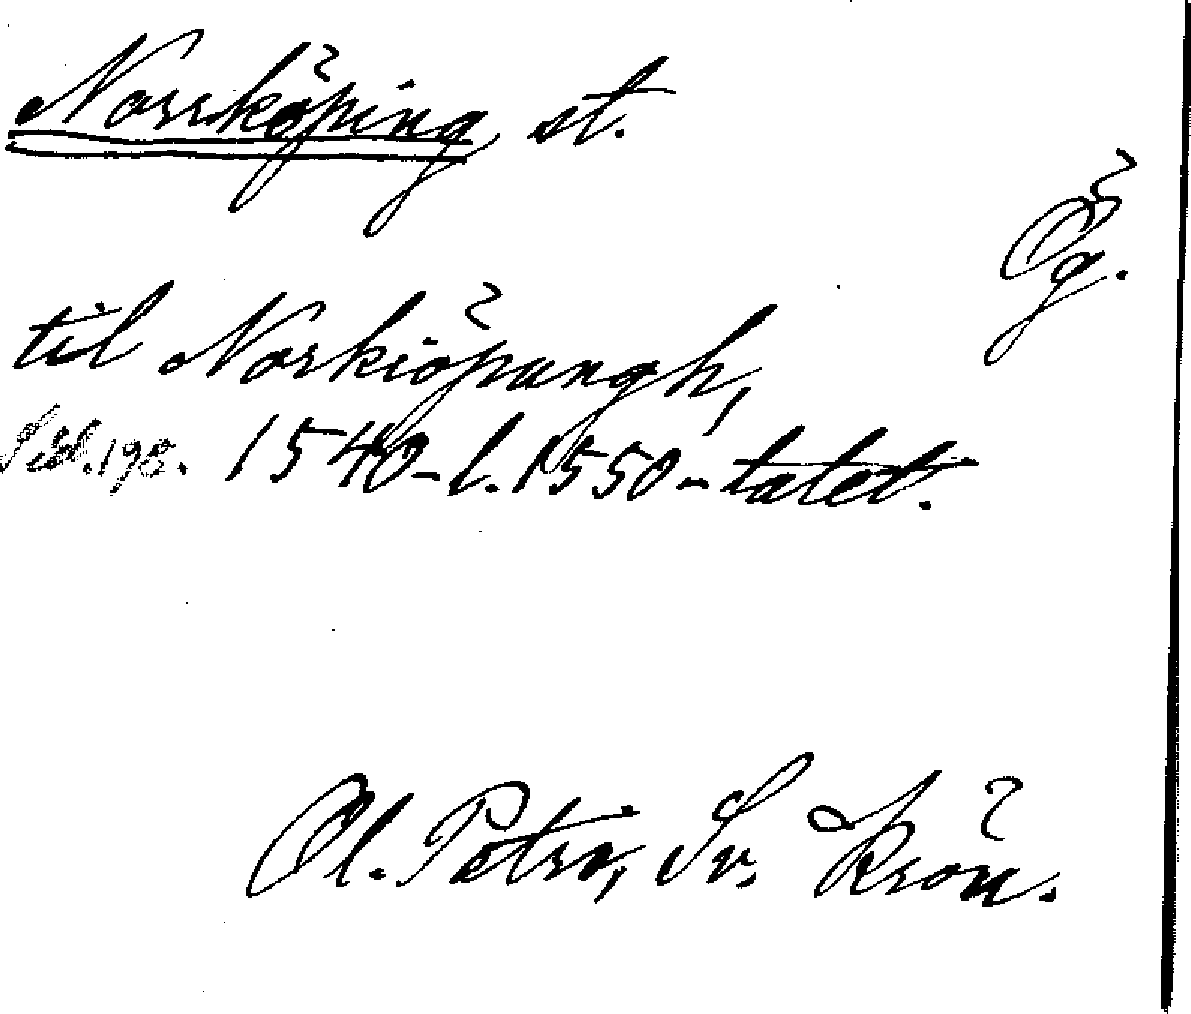 Norrköping st.
Ög.
til Norkiöpungh,
Sid. 198. 1540-l. 1550-talet.
Ol. Petri, Sv. Krön.